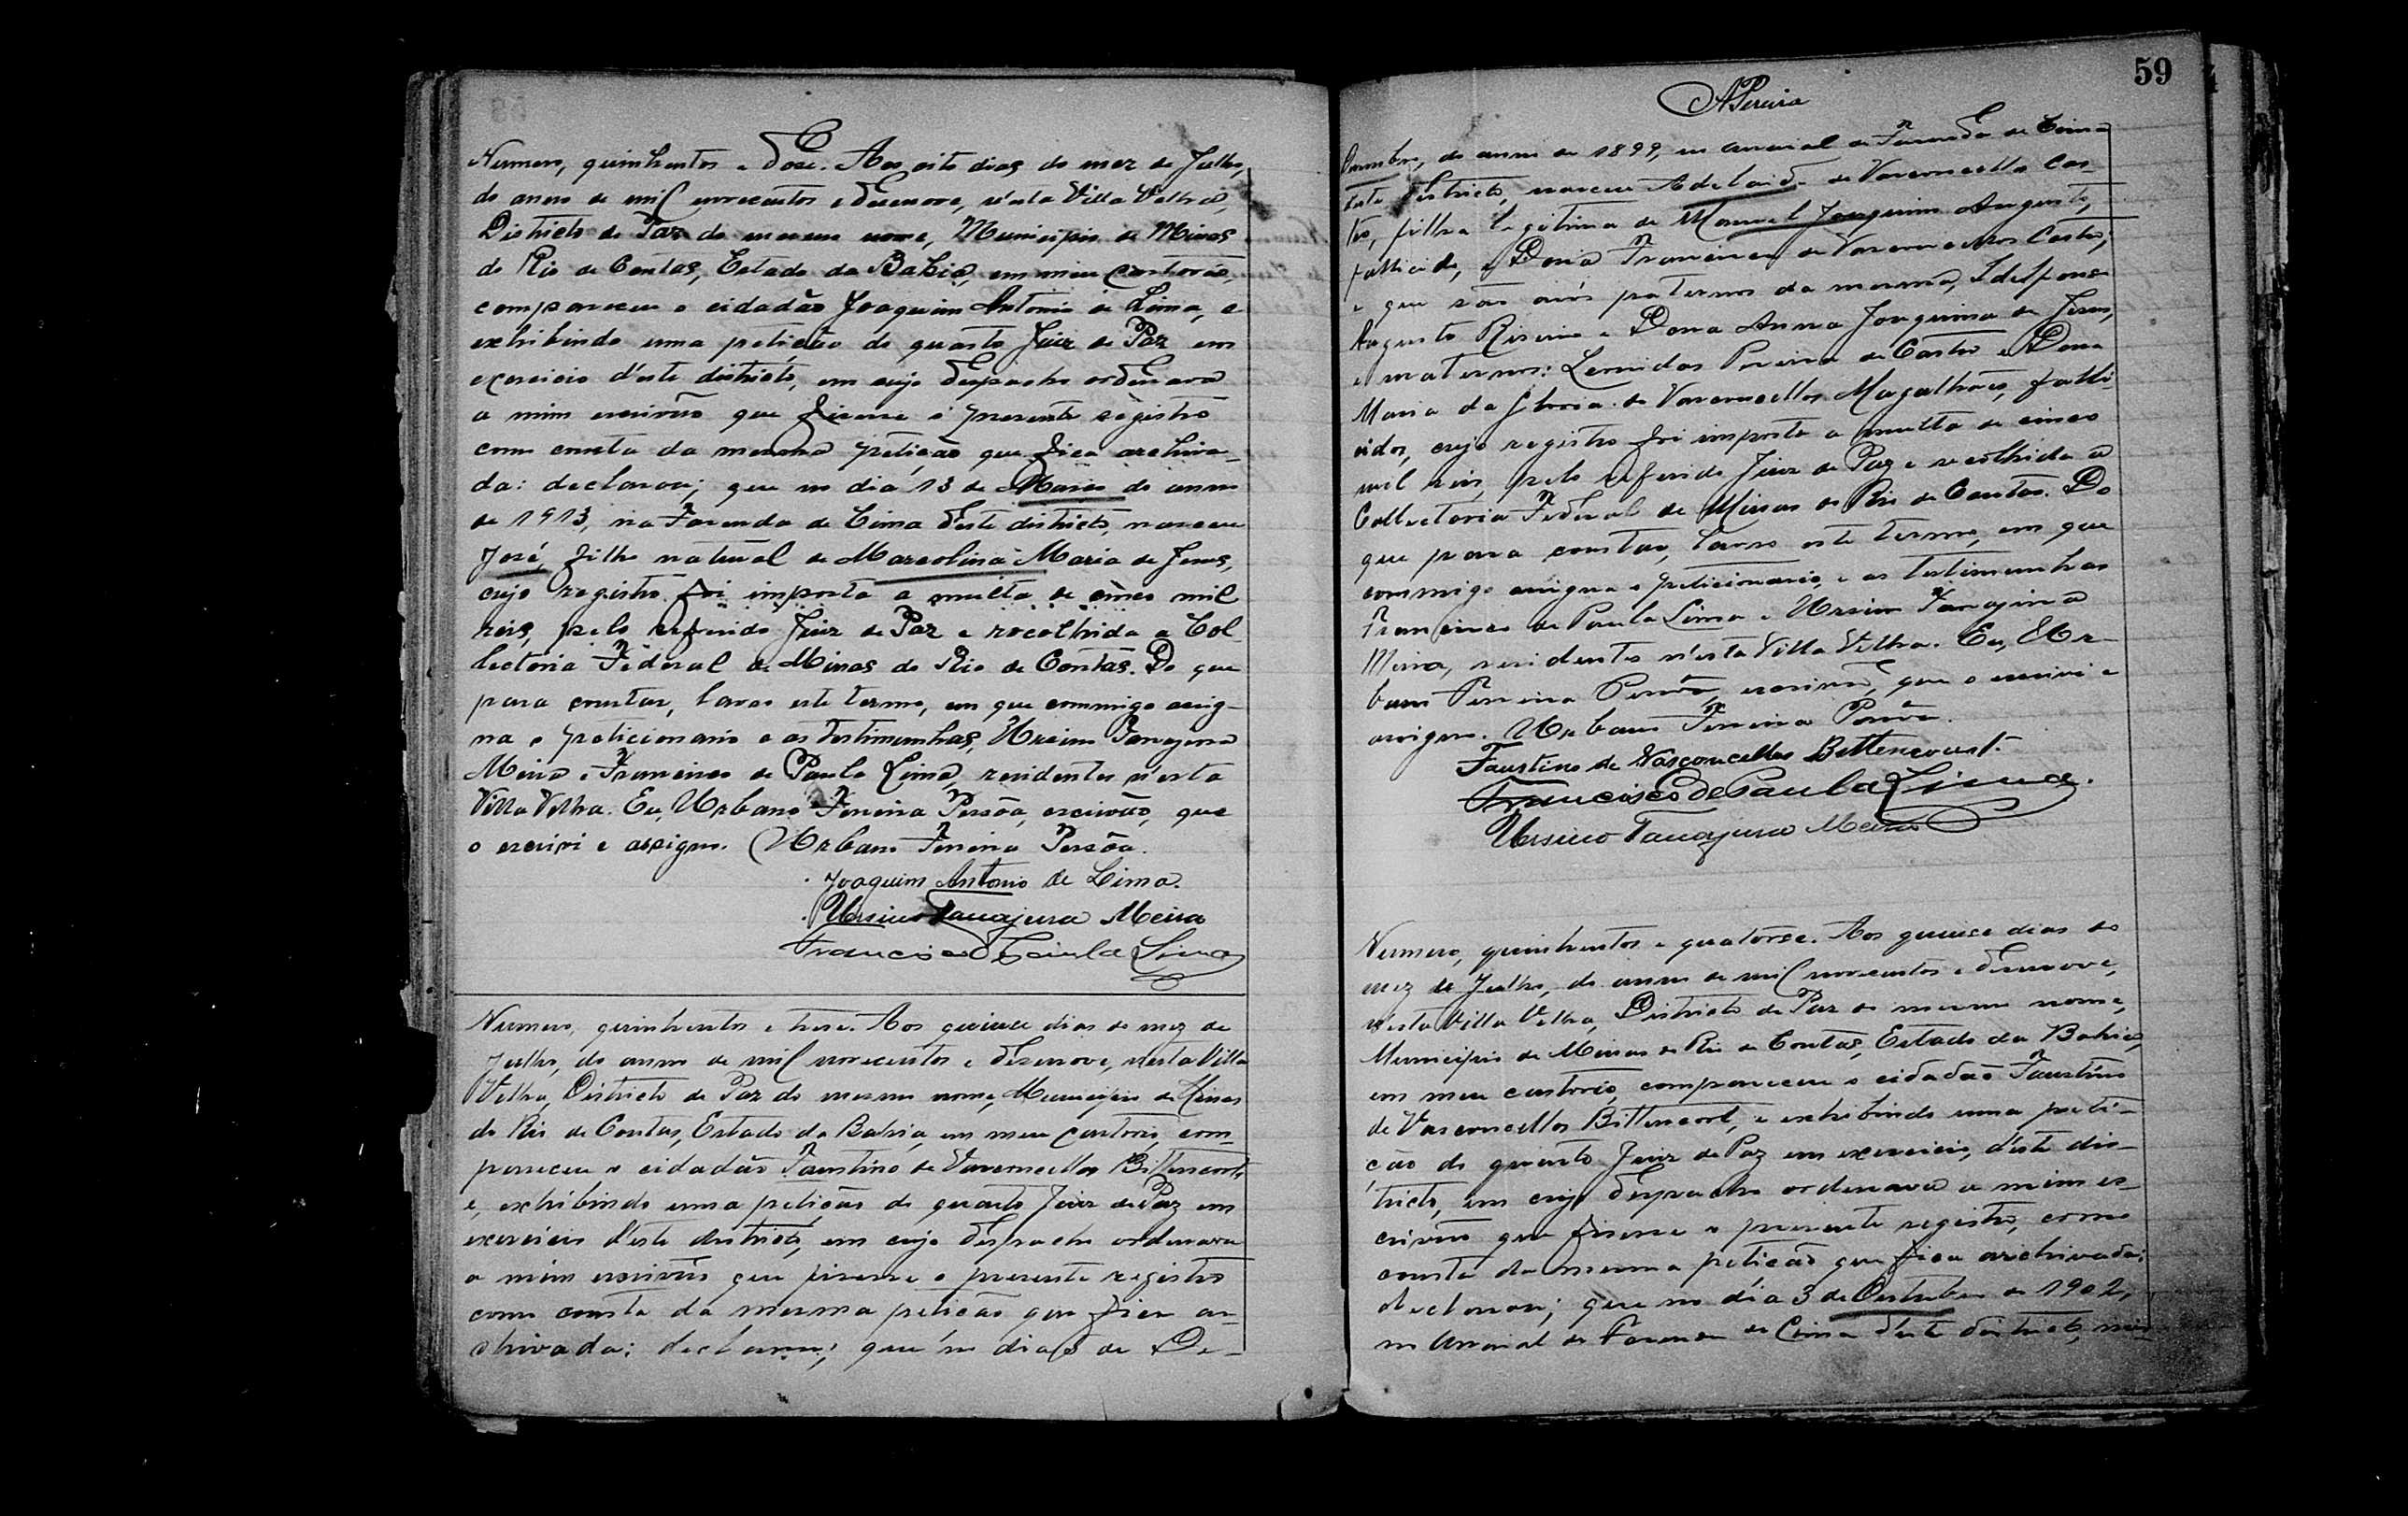 Numero, quinhentos e dose. Aos oito dias do mez de Julho,
do anno de mil novecentos e desenove, n'esta Villa Velha,
Districto de Paz do mesmo nome, Municipio de Minas
do Rio de Contas, Estado da Bahia, em meu cartorio,
compareceu o cidadão Joaquim Antonio de Lima, e
exhibindo uma petição do quarto Juiz de Paz em
exercicio d'este districto, em cujo despacho ordenava
a mim escrivão que fizesse o presente registro
como consta da mesma petição que fica archiva-
da: declarou; que no dia 13 de Março do anno
de 1913, na Fazenda de Cima d'este districto, nasceu
José, filho natural de Marcolina Maria de Jesus,
cujo registro foi imposta a multa de cinco mil
reis, pelo referido Juiz de Paz e recolhida a Col-
lectoria Federal de Minas do Rio de Contas. Do que
para constar, lavro este termo, em que commigo assig-
na o peticionario e as testimunhas, Ursino Tanajura
Meira e Francisco de Paula Lima, residentes n'esta
Villa Velha. Eu, Urbano Ferreira Pessôa, escrivão, que
o escrivi e assigno. Urbano Ferreira Pessôa.
Joaquim Antonio de Lima.
Ursino Tanajura Meira
Francisco de Paula Lima
Numero, quinhentos e trese. Aos quinse dias do mez de
Julho, do anno de mil novecentos e desenove, n'esta Villa
Velha, Districto de Paz do mesmo nome, Municipio de Minas
do Rio de Contas, Estado da Bahia, em meu cartorio, com-
pareceu o cidadão Faustino de Vasconcellos Bittencort,
e, exhibindo uma petição do quarto Juiz de Paz em
exercicio d'este districto, em cujo despacho ordenava
a mim escrivão que fizesse o presente registro
como consta da mesma petição que fica ar-
chivada: declarou; que no dia 3 de De-
59
APereira
Dezembro, do anno de 1899, no arraial da Fazenda de Cima
d'este districto, nasceu Adelaide de Vasconcellos Cas-
tro, filha legitima de Manoel Joaquim Augusto,
fallicido, e Dona Francisca de Vasconcellos Castro,
e que são avós paternos da mesma, Idelfonso
Augusto Risério e Dona Anna Joaquina de Jesus,
e maternos: Leonidas Pereira de Castro e Dona
Maria da Gloria de Vasconcellos Magalhães, falli-
cidos, cujo registro foi imposta a multa de cinco
mil reis, pelo referido Juiz de Paz e recolhida a
Collectoria Federal de Minas do Rio de Contas. Do
que para constar, lavro este termo, em que
commigo assigna o peticionario, e as testimunhas
Francisco de Paula Lima e Ursino Tanajura
Meira, residentes n'esta Villa Velha. Eu, Ur-
bano Ferreira Pessôa, escrivão, que o escrivi e
assigno. Urbano Ferreira Pessôa.
Faustino de Vasconcellos Bittencourt.
Francisco de Paula Lima.
Ursino Tanajura Meira
Numero, quinhentos e quatorse. Aos quinse dias do
mez de Julho, do anno de mil novecentos e desenove,
n'esta Villa Velha, Districto de Paz do mesmo nome,
Municipio de Minas do Rio de Contas, Estado da Bahia,
em meu cartorio, compareceu o cidadão Faustino
de Vasconcellos Bittencort, e exhibindo uma peti-
ção do quarto Juiz de Paz em exercicio, d'este dis-
tricto, em cujo despacho ordenava a mim es-
crivão que fizesse o presente registro, como
consta da mesma petição que fica archivada:
declarou; que no dia 3 de Outubro de 1902,
no Arraial da Fazenda de Cima d'este districto, nas